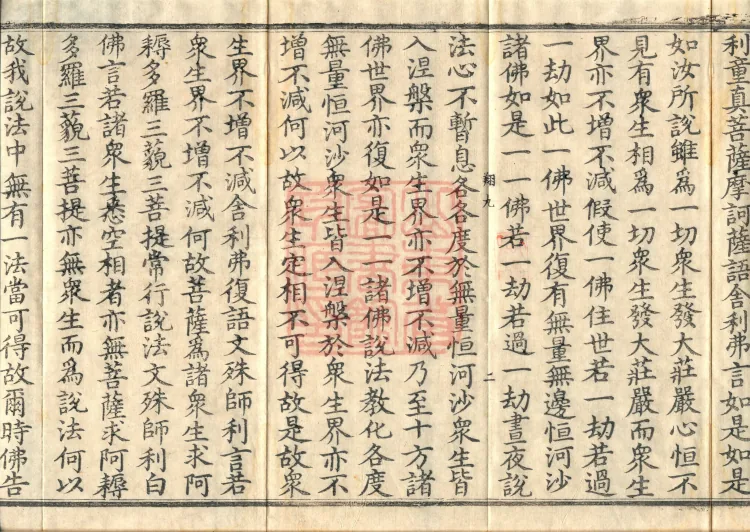 利童真菩薩摩訶薩語舍利弗言如是如是
如汝所說雖爲一切衆生發大莊嚴心恒不
見有衆生相爲一切衆生發大莊嚴而衆生
界亦不增不減假使一佛住世若一劫若過
一劫如此一佛世界復有無量無邊恒河沙
諸佛如是一一佛若一劫若過一劫晝夜說
翔九
二
法心不暫息各各度於無量恒河沙衆生皆
入涅槃而衆生界亦不增不減乃至十方諸
佛世界亦復如是一一諸佛說法教化各度
無量恒河沙衆生皆入涅槃於衆生界亦不
增不減何以故衆生定相不可得故是故衆
生界不增不減舍利弗復語文殊師利言若
衆生界不增不減何故菩薩爲諸衆生求阿
耨多羅三藐三菩提常行說法文殊師利白
佛言若諸衆生悉空相者亦無菩薩求阿耨
多羅三藐三菩提亦無衆生而爲說法何以
故我說法中無有一法當可得故爾時佛告